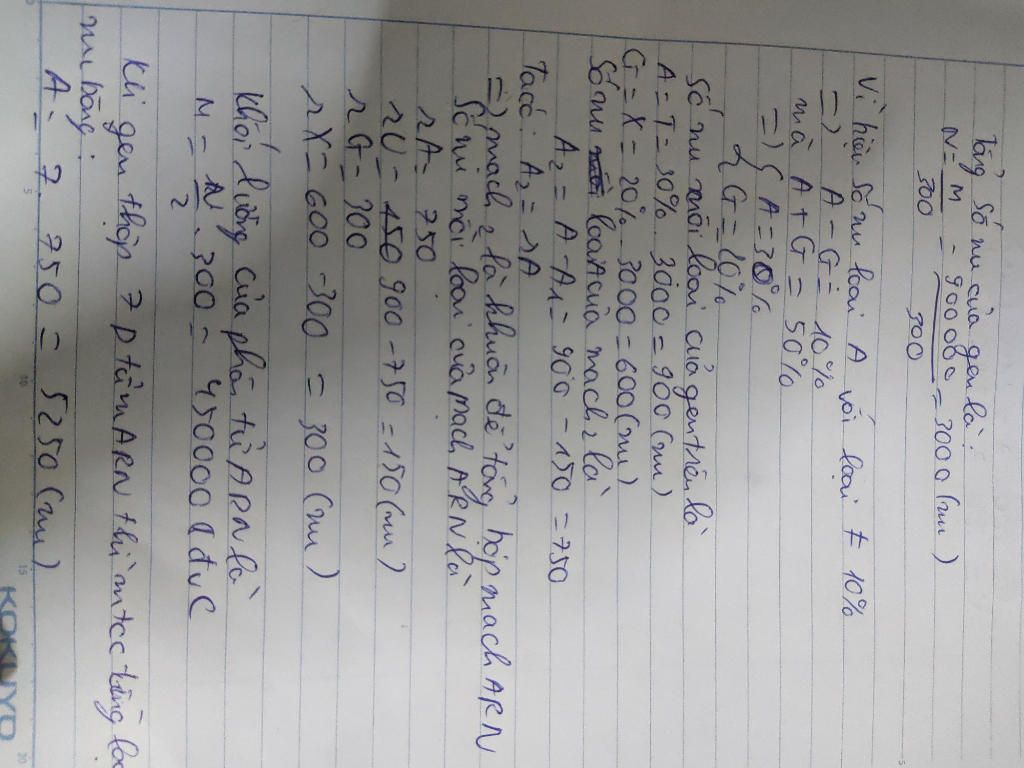 Tổng số nu của gen là:
N = M/300 = 900000/300 = 3000 (nu)
Vì hiệu số nu loại A với loại ≠ 10%
=) A - G = 10%
mà A + G = 50%
=) { A = 30%
{ G = 20%
Số nu mỗi loại của gen trên là
A = T = 30% . 3000 = 900 (nu)
G = X = 20% . 3000 = 600 (nu)
Số nu loại A của mạch 2 là
A2 = A - A1 = 900 - 150 = 750
Ta có: A2 = rA
=) mạch 2 là khuôn để tổng hợp mạch ARN
Số nu mỗi loại của mạch ARN là
rA = 750
rU = 900 - 750 = 150 (nu)
rG = 300
rX = 600 - 300 = 300 (nu)
Khối lượng của phân tử ARN là
M = N/2 . 300 = 450000 (đvC
Khi gen tháp 7 p tử mARN thì mtcc từng loạ
nu bằng:
A = 7 . 750 = 5250 (nu)
KOKUYO